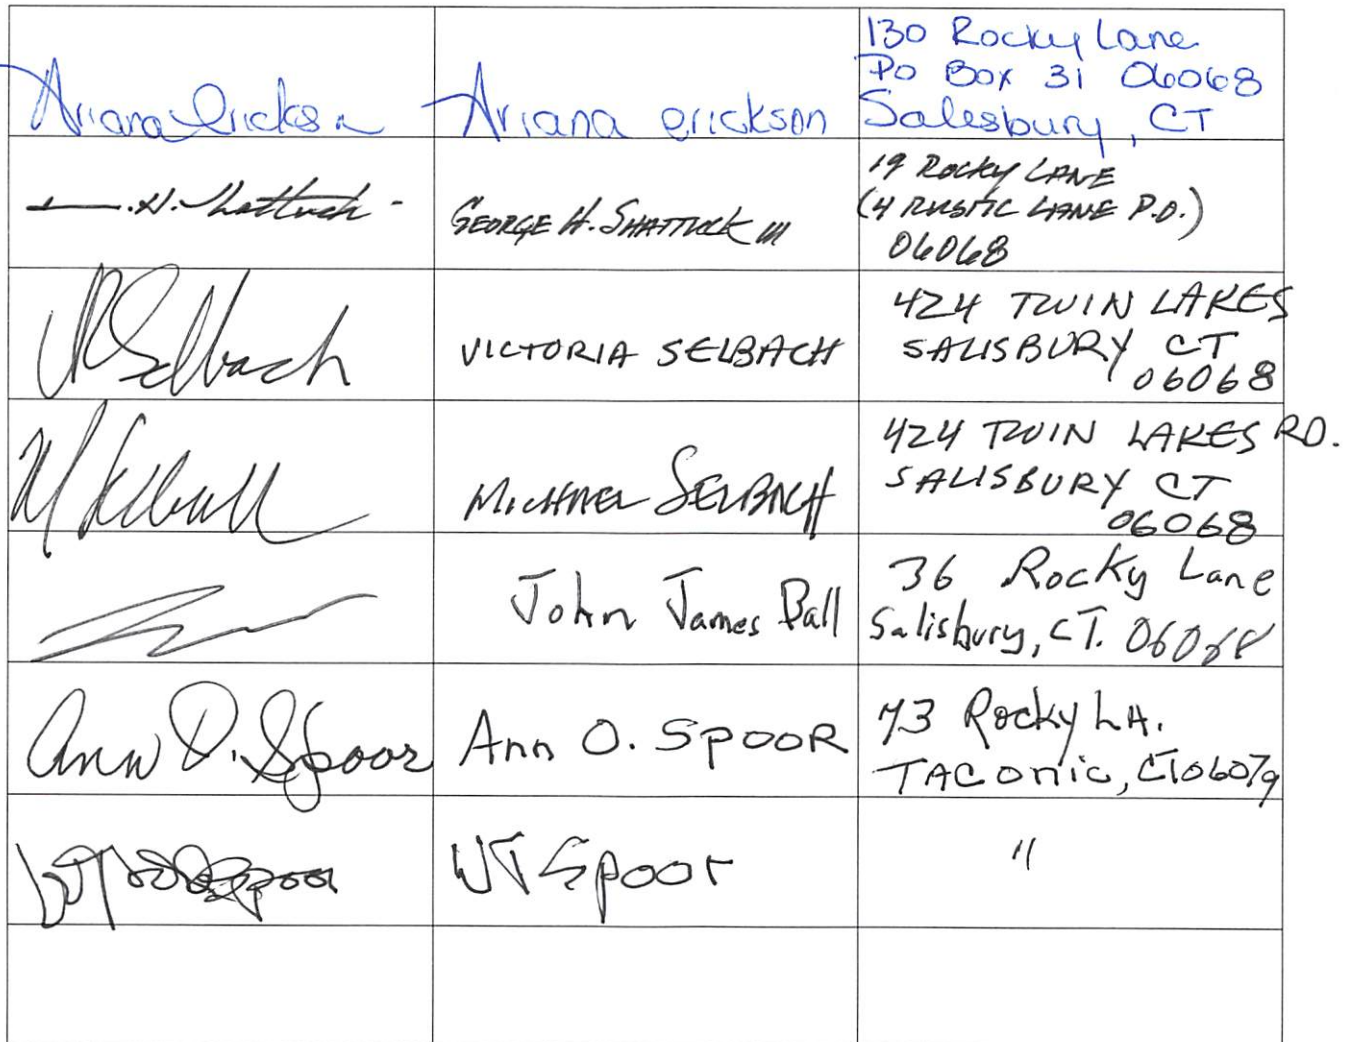 Ariana Erickson
Ariana erickson
130 Rocky Lane
Po Box 31 06068
Salesbury, CT
H. Shattuck
GEORGE H. SHATTUCK III
19 ROCKY LANE
(4 RUSTIC LANE P.O.)
06068
Selbach
VICTORIA SELBACH
424 TWIN LAKES
SALISBURY CT
06068
MICHAEL SELBACH
424 TWIN LAKES RD.
SALISBURY CT
06068
John James Ball
36 Rocky Lane
Salisbury, CT. 06068
Ann O. Spoor
Ann O. SpooR
73 Rocky LA.
TAConic, CT 06079
Spoor
WT Spoor
"